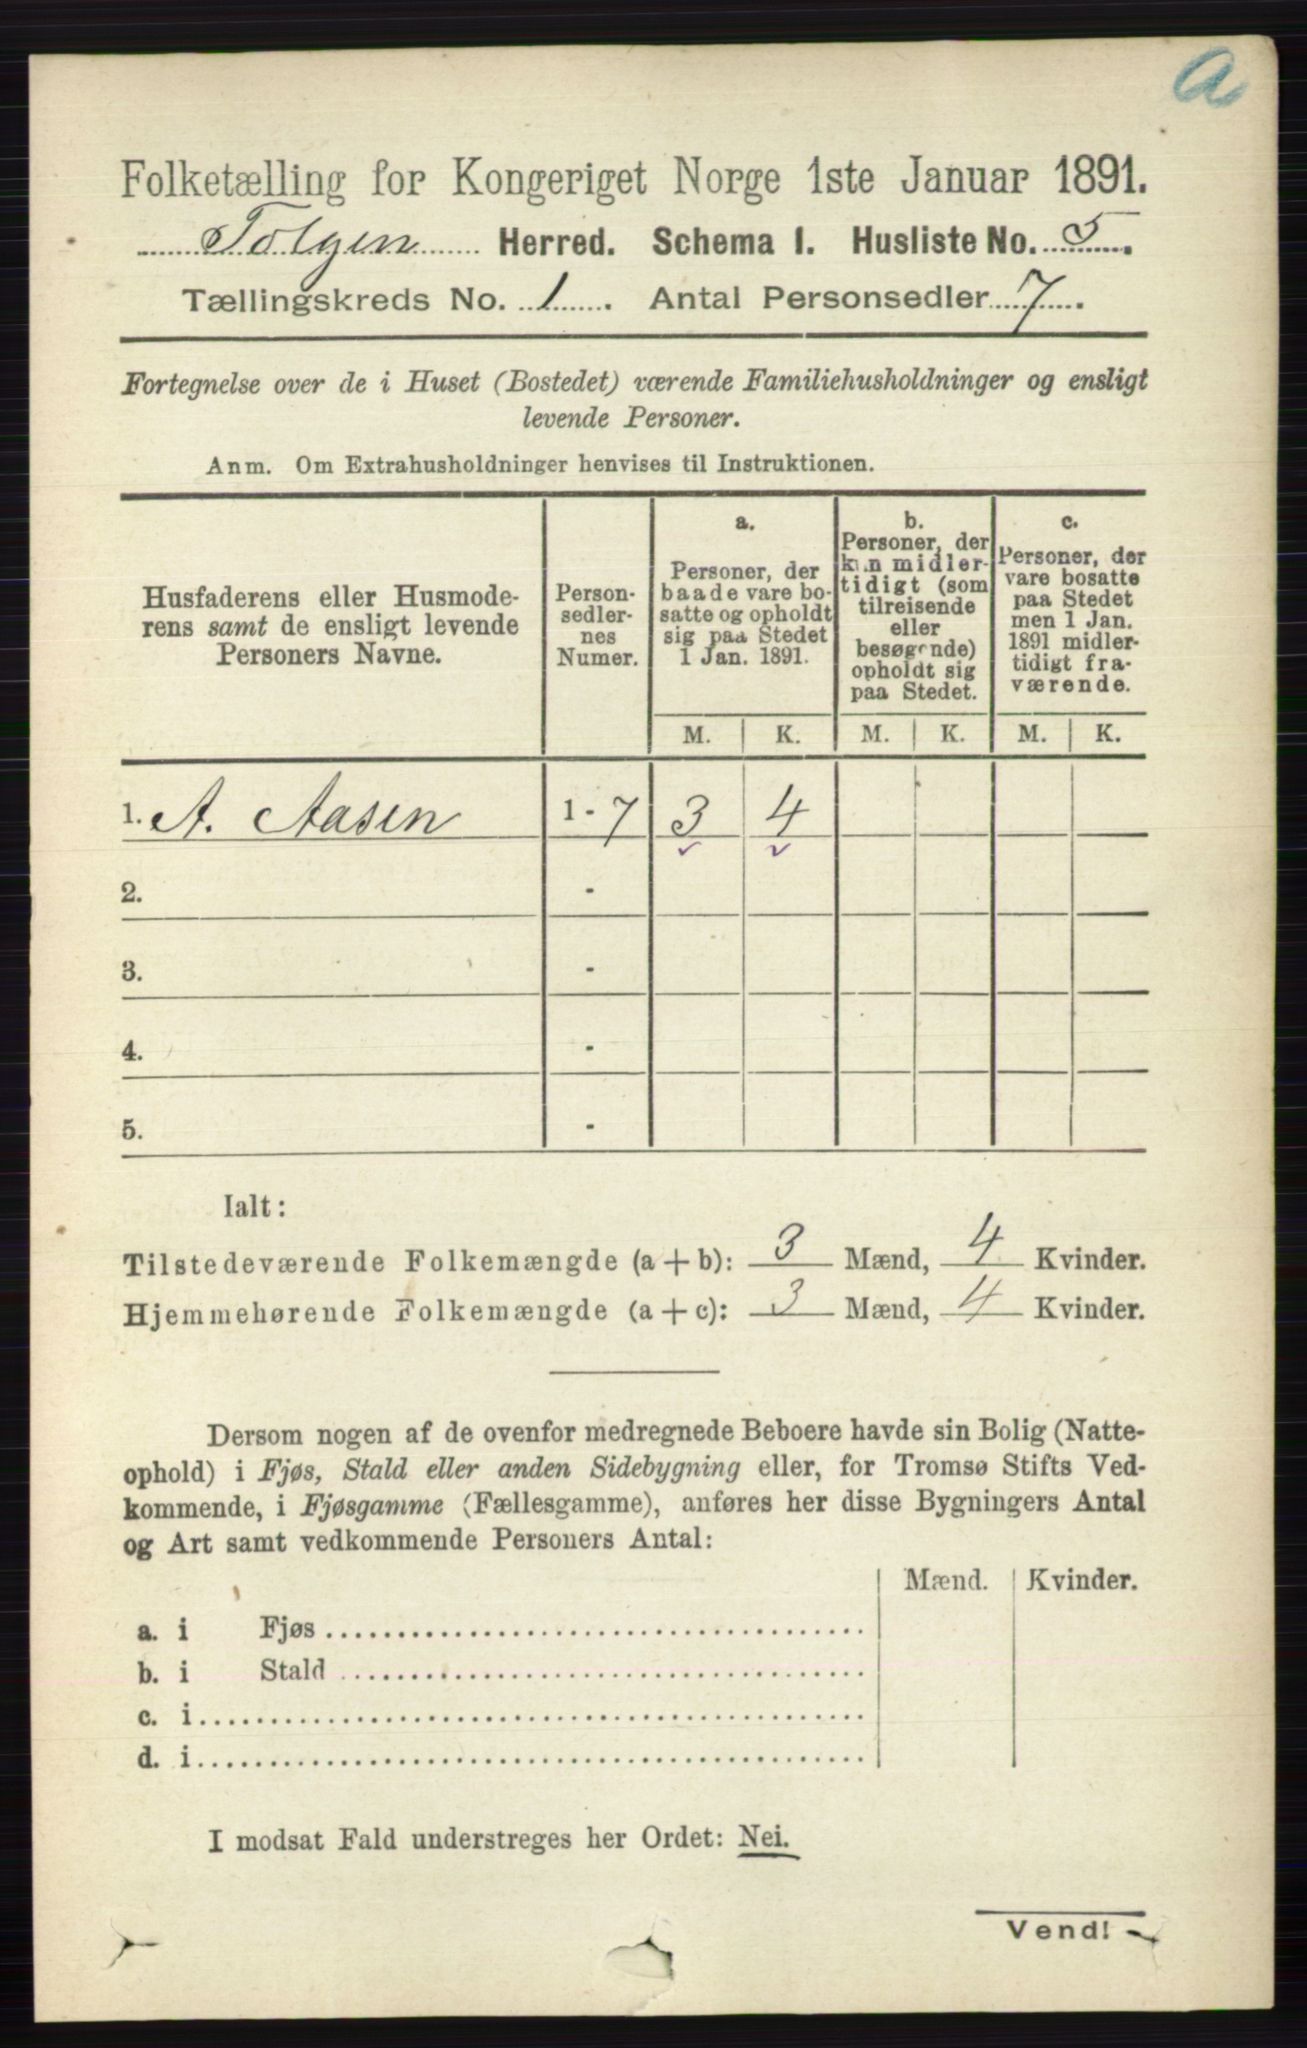 a
Folketælling for Kongeriget Norge 1ste Januar 1891.
Tolgen Herred. Schema I. Husliste No. 5.
Tællingskreds No. 1. Antal Personsedler 7.
Fortegnelse over de i Huset (Bostedet) værende Familiehusholdninger og ensligt
levende Personer.
Anm. Om Extrahusholdninger henvises til Instruktionen.
Husfaderens eller Husmode-
rens samt de ensligt levende
Personers Navne.
Person-
sedler-
nes
Numer.
a.
Personer, der
baade vare bo-
satte og opholdt
sig paa Stedet
1 Jan. 1891.
b.
Personer, der
kun midler-
tidigt (som
tilreisende
eller
besøgende)
opholdt sig
paa Stedet.
c.
Personer, der
vare bosatte
paa Stedet
men 1 Jan.
1891 midler-
tidigt fra-
værende.
M. K. M. K. M. K.
1. A. Aasen 1 - 7 3 4
2. -
3. -
4. -
5. -
Ialt:
Tilstedeværende Folkemængde (a + b): 3 Mænd, 4 Kvinder.
Hjemmehørende Folkemængde (a + c): 3 Mænd, 4 Kvinder.
Dersom nogen af de ovenfor medregnede Beboere havde sin Bolig (Natte-
ophold) i Fjøs, Stald eller anden Sidebygning eller, for Tromsø Stifts Ved-
kommende, i Fjøsgamme (Fællesgamme), anføres her disse Bygningers Antal
og Art samt vedkommende Personers Antal:
Mænd. Kvinder.
a. i Fjøs
b. i Stald
c. i
d. i
I modsat Fald understreges her Ordet: Nei.
Vend!